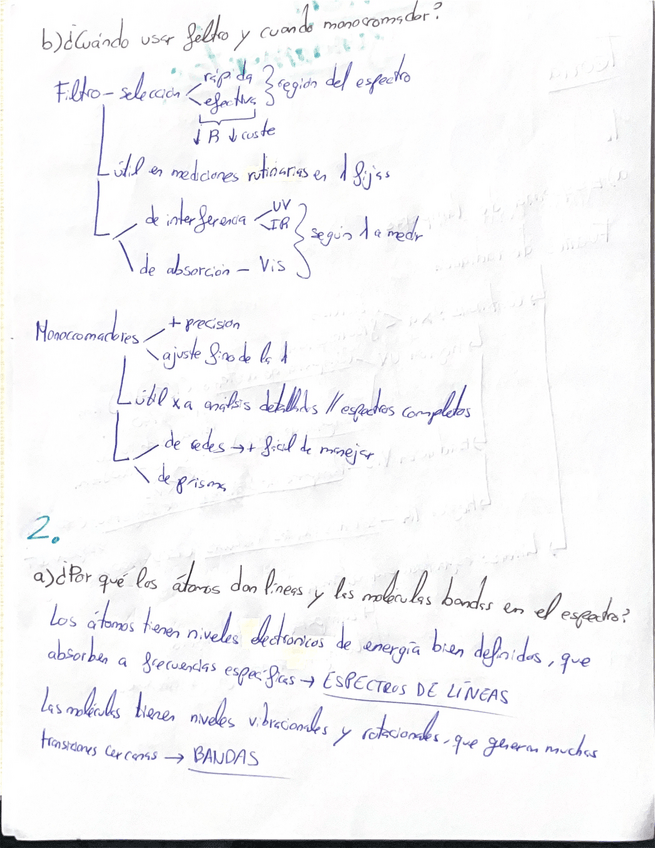 b) ¿Cuándo usar filtro y cuando monocromador?
Filtro – selección rápida efectiva } región del espectro
↓ R ↓ coste
útil en mediciones rutinarias en λ fijas
de interferencia UV IR
} según λ a medir
de absorción – Vis
Monocromadores + precisión
ajuste fino de la λ
útil xa análisis detallados // espectros completos
de redes → + fácil de manejar
de prisma
2.
a) ¿Por qué los átomos dan líneas y las moléculas bandas en el espectro?
Los átomos tienen niveles electrónicos de energía bien definidos, que
absorben a frecuencias específicas → ESPECTROS DE LÍNEAS
Las moléculas tienen niveles vibracionales y rotacionales, que generan muchas
transiciones cercanas → BANDAS